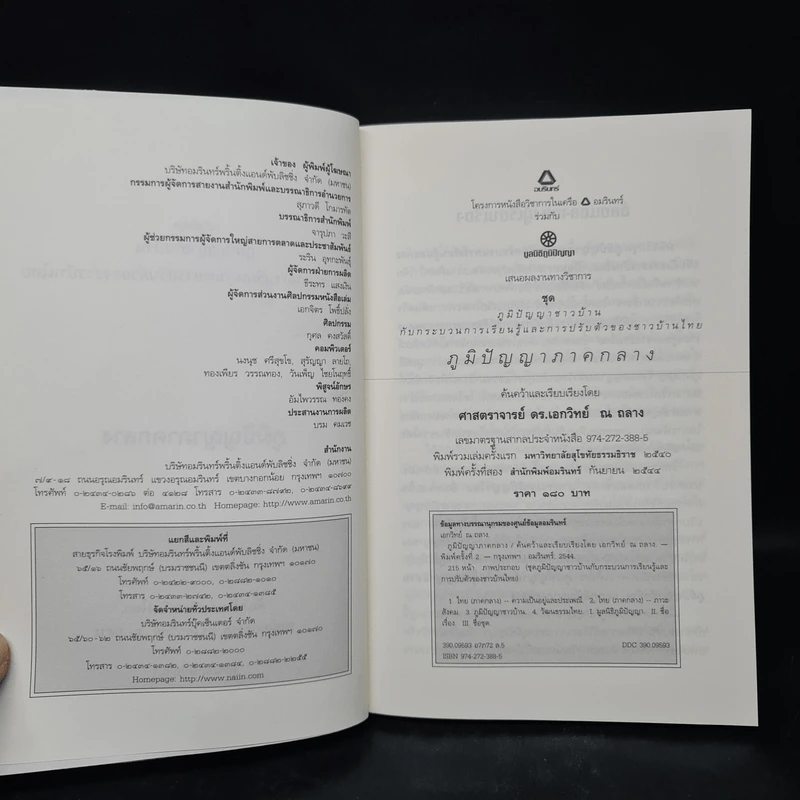 เจ้าของ ผู้พิมพ์ผู้โฆษณา
บริษัทอมรินทร์พริ้นติ้งแอนด์พับลิชชิ่ง จำกัด (มหาชน)
กรรมการผู้จัดการสายงานสำนักพิมพ์และบรรณาธิการอำนวยการ
สุภาวดี โกมารทัต
บรรณาธิการสำนักพิมพ์
จารุปภา วะสี
ผู้ช่วยกรรมการผู้จัดการใหญ่สายการตลาดและประชาสัมพันธ์
ระริน อุทกะพันธุ์
ผู้จัดการฝ่ายการผลิต
ธีระทร แสงเงิน
ผู้จัดการส่วนงานศิลปกรรมหนังสือเล่ม
เอกจิตร โพธิ์ปลั่ง
ศิลปกรรม
กุศล คงสวัสดิ์
คอมพิวเตอร์
นงนุช ศรีสุขโข, สุรัญญา ลายโถ,
ทองเพียร วรรณทอง, วันเพ็ญ ไชยโนฤทธิ์
พิสูจน์อักษร
อัมไพวรรณ ทองคง
ประสานงานการผลิต
บรม คมเวช
สำนักงาน
บริษัทอมรินทร์พริ้นติ้งแอนด์พับลิชชิ่ง จำกัด (มหาชน)
๗/๙-๑๘ ถนนอรุณอมรินทร์ แขวงอรุณอมรินทร์ เขตบางกอกน้อย กรุงเทพฯ ๑๐๗๐๐
โทรศัพท์ ๐-๒๔๓๔-๐๒๘๖ ต่อ ๔๑๒๘ โทรสาร ๐-๒๔๓๓-๘๗๙๒, ๐-๒๔๓๔-๘๖๙๙
E-mail: info@amarin.co.th Homepage: http://www.amarin.co.th
แยกสีและพิมพ์ที่
สายธุรกิจโรงพิมพ์ บริษัทอมรินทร์พริ้นติ้งแอนด์พับลิชชิ่ง จำกัด (มหาชน)
๖๕/๑๖ ถนนชัยพฤกษ์ (บรมราชชนนี) เขตตลิ่งชัน กรุงเทพฯ ๑๐๑๗๐
โทรศัพท์ ๐-๒๔๒๒-๙๐๐๐, ๐-๒๘๘๒-๑๐๑๐
โทรสาร ๐-๒๔๓๓-๒๗๔๒, ๐-๒๔๓๔-๑๓๘๕
จัดจำหน่ายทั่วประเทศโดย
บริษัทอมรินทร์บุ๊คเซ็นเตอร์ จำกัด
๖๕/๖๐-๖๒ ถนนชัยพฤกษ์ (บรมราชชนนี) เขตตลิ่งชัน กรุงเทพฯ ๑๐๑๗๐
โทรศัพท์ ๐-๒๘๘๒-๒๐๐๐
โทรสาร ๐-๒๔๓๔-๑๓๘๒, ๐-๒๔๓๔-๑๓๘๔, ๐-๒๘๘๒-๒๒๕๕
Homepage: http://www.naiin.com
อมรินทร์
โครงการหนังสือวิชาการในเครือ อมรินทร์
ร่วมกับ
มูลนิธิภูมิปัญญา
เสนอผลงานทางวิชาการ
ชุด
ภูมิปัญญาชาวบ้าน
กับกระบวนการเรียนรู้และการปรับตัวของชาวบ้านไทย
ภูมิปัญญาภาคกลาง
ค้นคว้าและเรียบเรียงโดย
ศาสตราจารย์ ดร.เอกวิทย์ ณ ถลาง
เลขมาตรฐานสากลประจำหนังสือ 974-272-388-5
พิมพ์รวมเล่มครั้งแรก มหาวิทยาลัยสุโขทัยธรรมธิราช ๒๕๔๐
พิมพ์ครั้งที่สอง สำนักพิมพ์อมรินทร์ กันยายน ๒๕๔๔
ราคา ๑๘๐ บาท
ข้อมูลทางบรรณานุกรมของศูนย์ข้อมูลอมรินทร์
เอกวิทย์ ณ ถลาง.
ภูมิปัญญาภาคกลาง / ค้นคว้าและเรียบเรียงโดย เอกวิทย์ ณ ถลาง. —
พิมพ์ครั้งที่ 2. — กรุงเทพฯ : อมรินทร์, 2544.
215 หน้า. ภาพประกอบ (ชุดภูมิปัญญาชาวบ้านกับกระบวนการเรียนรู้และ
การปรับตัวของชาวบ้านไทย)
1. ไทย (ภาคกลาง) — ความเป็นอยู่และประเพณี. 2. ไทย (ภาคกลาง) — ภาวะ
สังคม. 3. ภูมิปัญญาชาวบ้าน. 4. วัฒนธรรมไทย. I. มูลนิธิภูมิปัญญา. II. ชื่อ
เรื่อง. III. ชื่อชุด.
390.09593 DDC 390.09593
ISBN 974-272-388-5